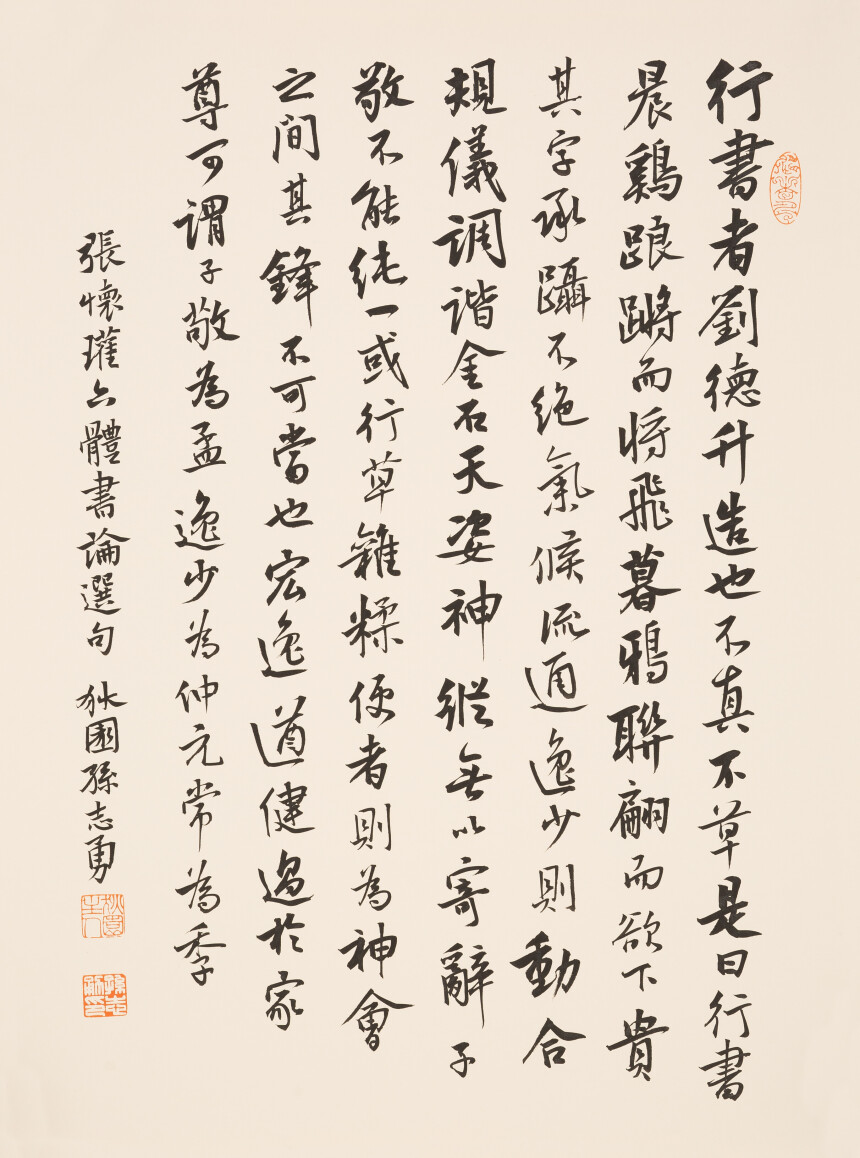 行書者劉德升造也不真不草是曰行書
晨鷄踉蹡而将飛暮鴉聯翩而欲下貴
其字承躡不绝氣候流通逸少則動合
規儀調谐金石天姿神縱無以寄辭子
敬不能纯一或行草雜糅便者則為神會
之间其鋒不可當也宏逸遒健過於家
尊可謂子敬為孟逸少為仲元常為季
張懷瓘六體書論選句 狄園孫志勇